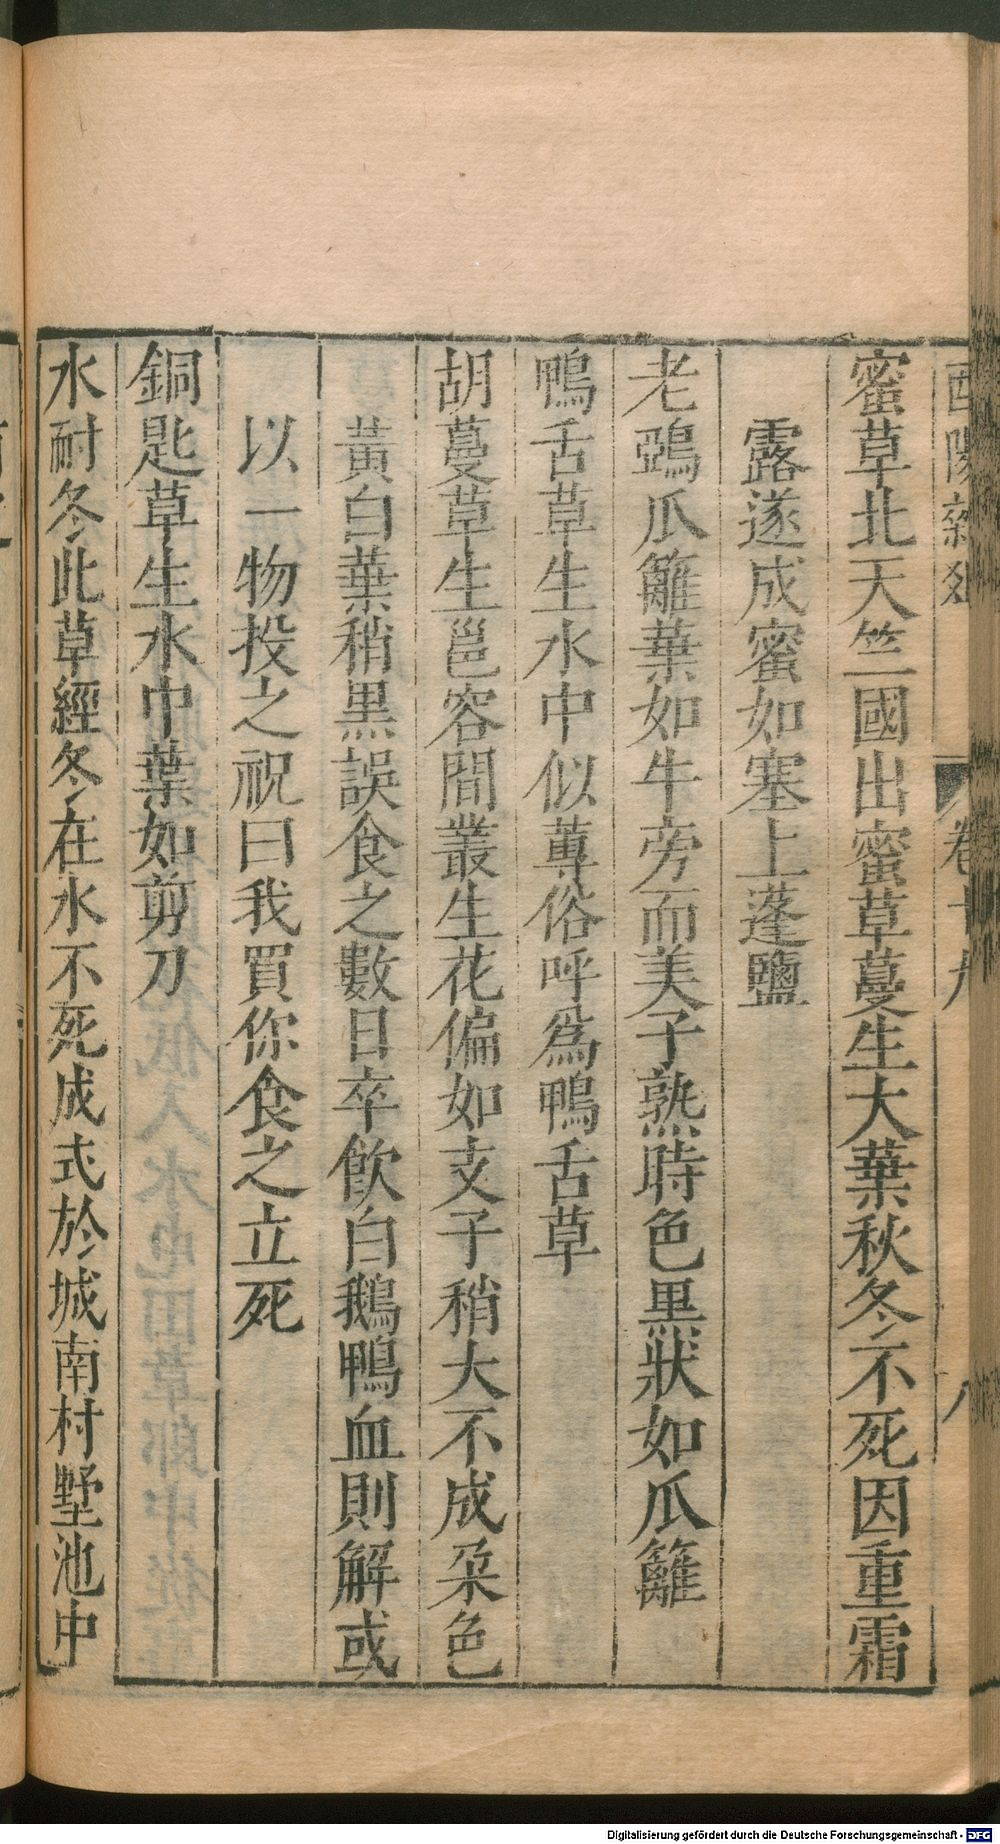 蜜草北天竺國出蜜草蔓生大葉秋冬不死因重霜
露遂成蜜如塞上蓬鹽
老鵶瓜籬葉如牛旁而美子熟時色黒狀如瓜籬
鴨舌草生水中似蓴俗呼為鴨舌草
胡蔓草生邕容間叢生花偏如支子稍大不成朶色
黃白葉稍黒誤食之數日卒飲白鵝鴨血則解或
以一物投之祝曰我買你食之立死
銅匙草生水中葉如剪刀
水耐冬此草經冬在水不死成式於城南村墅池中
Digitalisierung gefördert durch die Deutsche Forschungsgemeinschaft - DFG